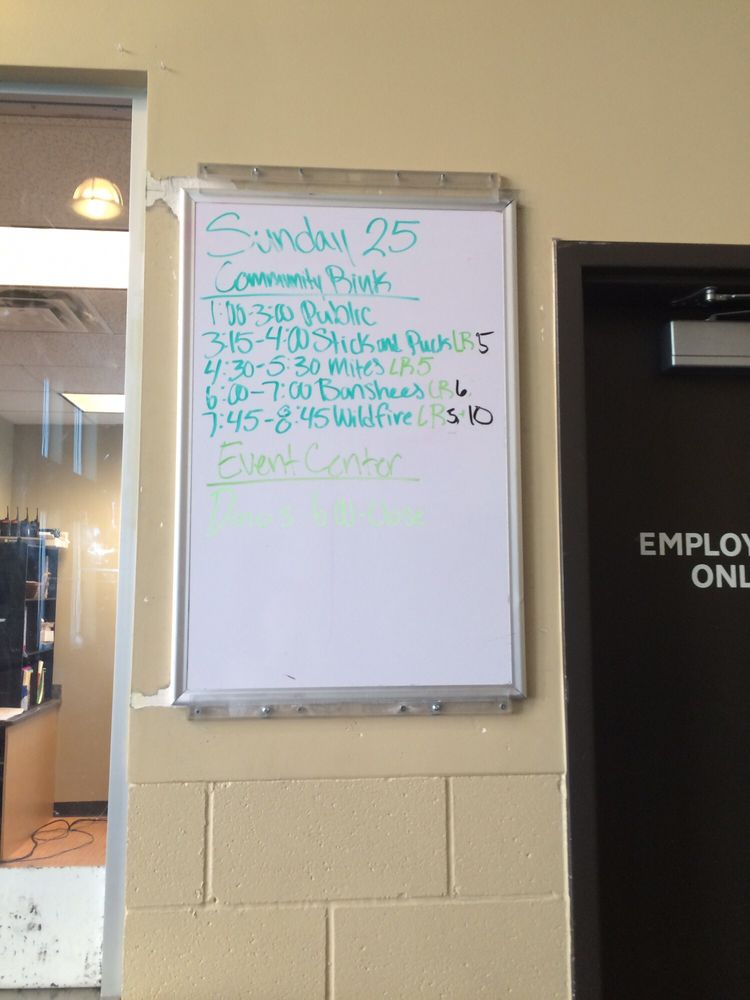 Sunday 25
Community Rink
1:00-3:00 Public
3:15-4:00 Stick and Puck LR 5
4:30-5:30 Mites LR 5
6:00-7:00 Banshees LR 6
7:45-8:45 Wildfire LR 5+10
Event Center
Dino's 6:00-Close
EMPLOY
ONL